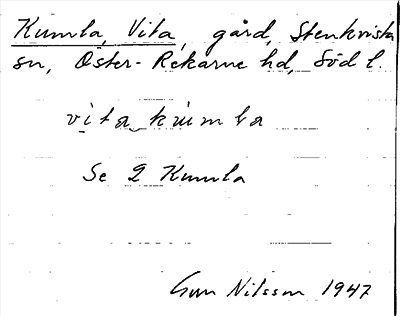 Kumla, Vita, gård, Stenkvista
sn, Öster-Rekarne hd, Södl.
vita kumla
Se 2 Kumla
Gun Nilsson 1947